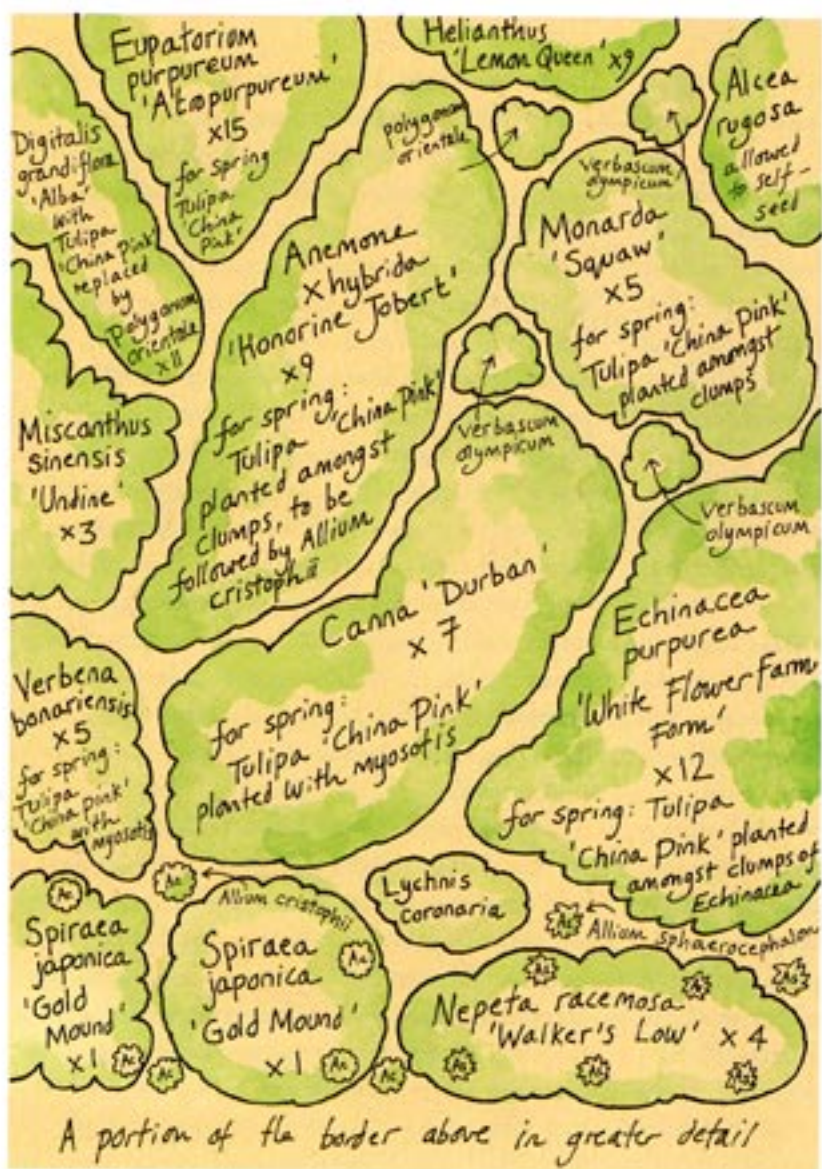 Eupatorium
purpureum
'Atropurpureum'
x15
for spring
Tulipa
'China
Pink'
Helianthus
'Lemon Queen' x9
Alcea
rugosa
allowed
to self-
seed
Digitalis
grandiflora
'Alba'
with
Tulipa
'China Pink'
replaced
by
polygonum
orientale
x11
polygonum
orientale
verbascum
olympicum
Anemone
x hybrida
'Honorine Jobert'
x9
for spring:
Tulipa 'China Pink'
planted amongst
clumps, to be
followed by Allium
cristophii
Monarda
'Squaw'
x5
for spring:
Tulipa 'China Pink'
planted amongst
clumps
Miscanthus
sinensis
'Undine'
x3
verbascum
olympicum
verbascum
olympicum
Canna 'Durban'
x 7
for spring:
Tulipa 'China Pink'
planted with myosotis
Echinacea
purpurea
'White Flower Farm
Form'
x12
for spring: Tulipa
'China Pink' planted
amongst clumps of
Echinacea
Verbena
bonariensis
x5
for spring:
Tulipa
'China pink'
with
myosotis
Allium cristophii
Lychnis
coronaria
Allium sphaerocephalon
Spiraea
japonica
'Gold
Mound'
x1
Spiraea
japonica
'Gold Mound'
x1
Nepeta racemosa
'Walker's Low' x 4
A portion of the border above in greater detail